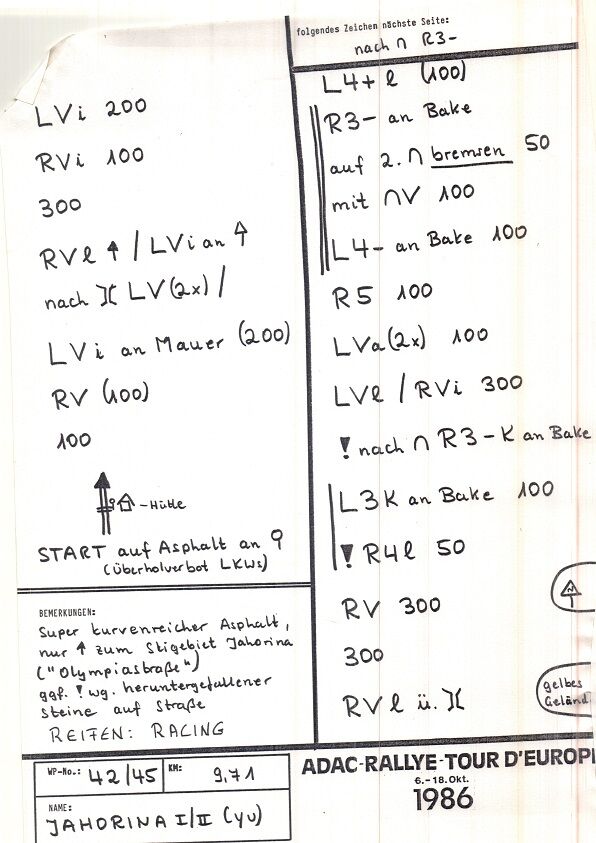 folgendes Zeichen nächste Seite:
nach ∩ R3-
LVi 200
RVi 100
300
RVl ↑ / LVi an ↑
nach )( LV(2x) /
LVi an Mauer (200)
RV (100)
100
-Hütte
START auf Asphalt an
(Überholverbot LKWs)
BEMERKUNGEN:
Super kurvenreicher Asphalt,
nur ↑ zum Skigebiet Jahorina
("Olympiastraße")
ggf. ! wg. heruntergefallener
Steine auf Straße
REIFEN: RACING
WP-No.: 42/45 KM: 9,71
NAME:
JAHORINA I/II (YU)
L4+ l (100)
R3- an Bake
auf 2. ∩ bremsen 50
mit ∩V 100
L4- an Bake 100
R5 100
LVa(2x) 100
LVl / RVi 300
! nach ∩ R3-K an Bake
L3K an Bake 100
! R4l 50
RV 300
300
gelbes
Geländ
RVl ü. )(
ADAC-RALLYE-TOUR D'EUROP
6.-18. Okt.
1986